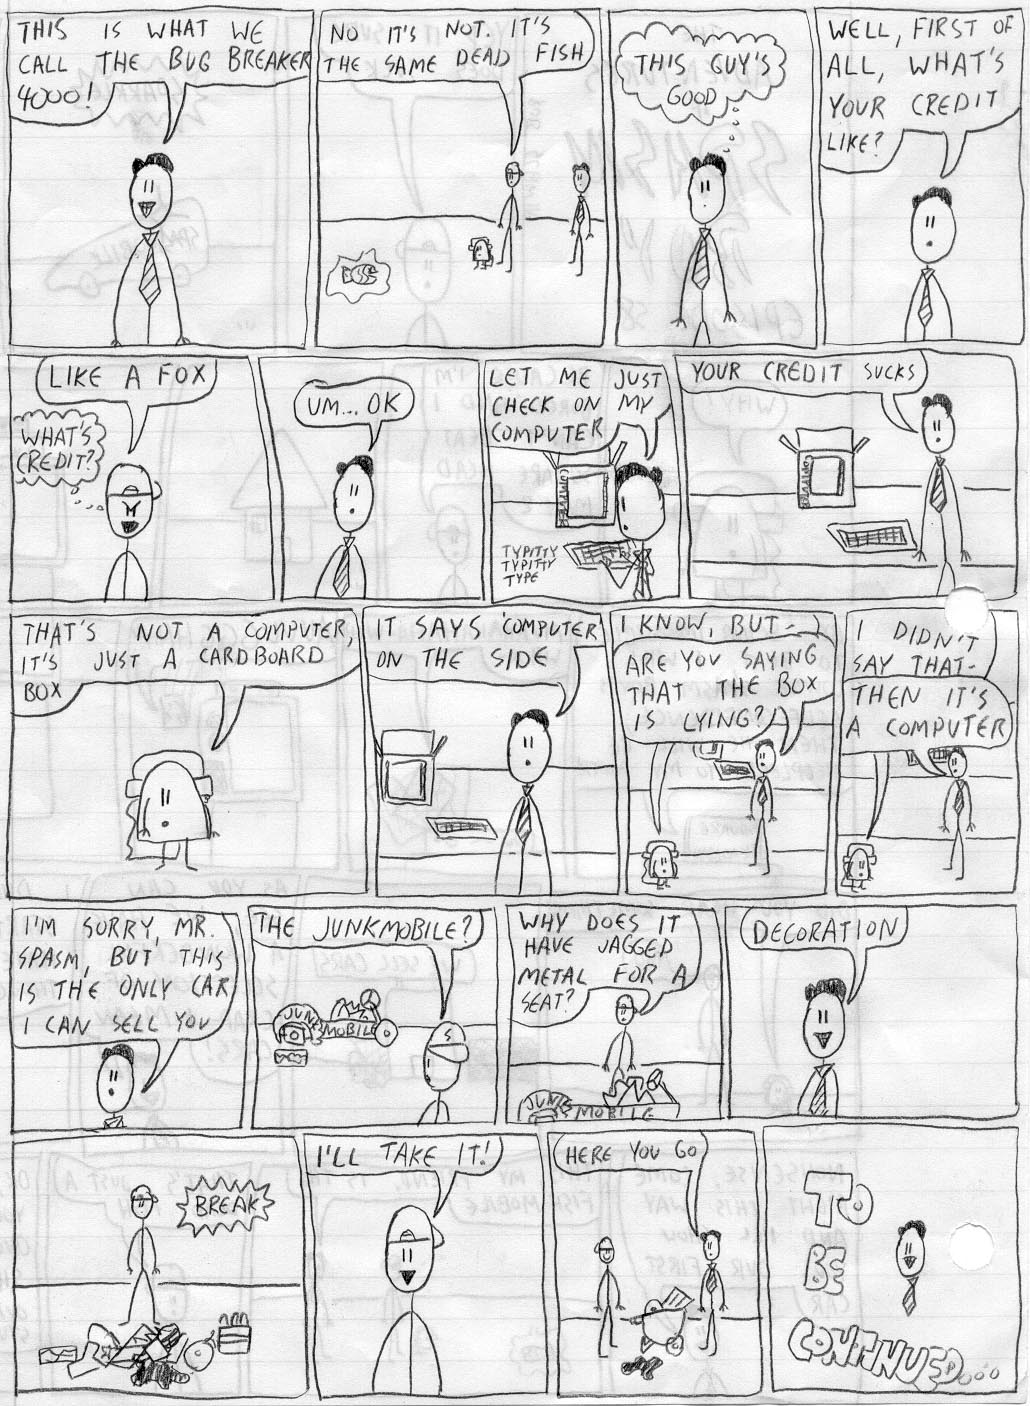 THIS IS WHAT WE
CALL THE BUG BREAKER
4000!
NO IT'S NOT. IT'S
THE SAME DEAD FISH
THIS GUY'S
GOOD
WELL, FIRST OF
ALL, WHAT'S
YOUR CREDIT
LIKE?
LIKE A FOX
WHAT'S
CREDIT?
UM... OK
LET ME JUST
CHECK ON MY
COMPUTER
COMPUTER
TYPITTY
TYPITTY
TYPE
YOUR CREDIT SUCKS
COMPUTER
THAT'S NOT A COMPUTER,
IT'S JUST A CARDBOARD
BOX
IT SAYS 'COMPUTER'
ON THE SIDE
I KNOW, BUT-
ARE YOU SAYING
THAT THE BOX
IS LYING?
I DIDN'T
SAY THAT-
THEN IT'S
A COMPUTER
I'M SORRY, MR.
SPASM, BUT THIS
IS THE ONLY CAR
I CAN SELL YOU
THE JUNKMOBILE?
JUNK
MOBILE
WHY DOES IT
HAVE JAGGED
METAL FOR A
SEAT?
JUNK
MOBILE
DECORATION
BREAK
I'LL TAKE IT!
HERE YOU GO
TO
BE
CONTINUED....